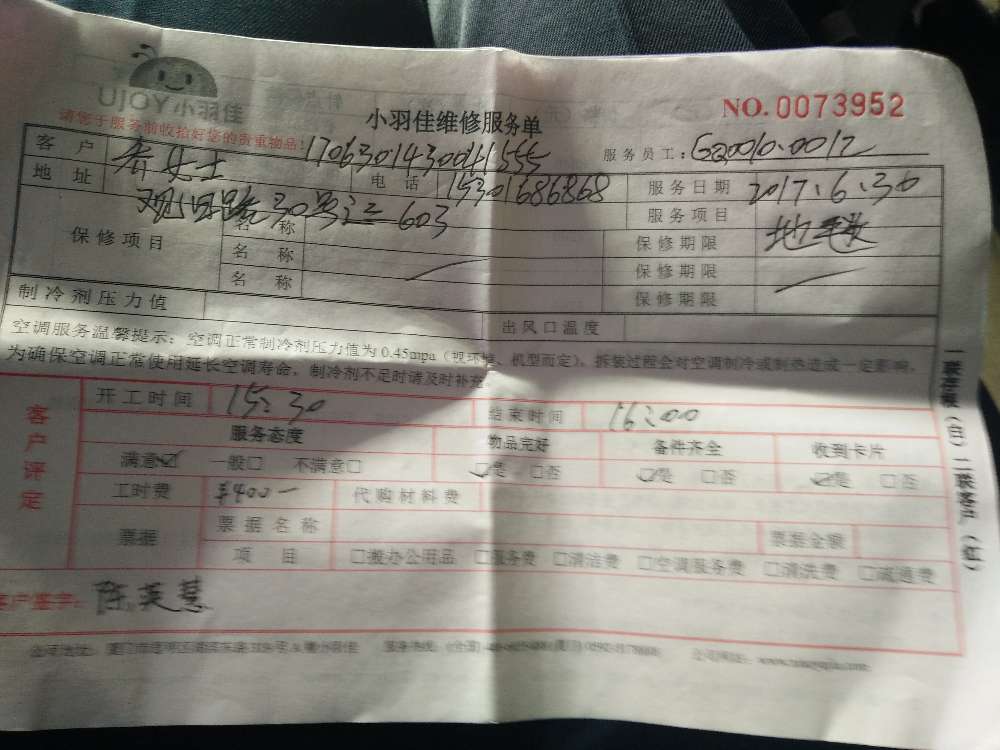 UJOY小羽佳
小羽佳维修服务单
NO.0073952
请您于服务前收拾好您的贵重物品!
客户 女士 服务员工:
地址 电话 15301686868 服务日期 2017.6.30
30号 603 服务项目 地毯
保修项目 名称 保修期限
名称 保修期限
名称 保修期限
制冷剂压力值 出风口温度
空调服务温馨提示:空调正常制冷剂压力值为0.45mpa(视环境、机型而定)。拆装过程会对空调制冷或制热造成一定影响,
为确保空调正常使用延长空调寿命,制冷剂不足时请及时补充
客户评定
开工时间 15:30 结束时间 16:00
服务态度 物品完好 备件齐全 收到卡片
满意☑ 一般□ 不满意□ ☑是 □否 ☑是 □否 ☑是 □否
工时费 ¥400— 代购材料费
票据 票据名称 票据金额
项目 □搬办公用品 □服务费 □清洁费 □空调服务费 □清洗费 □疏通费
客户签字: 陈英慧
一联存根(白)二联客户(红)